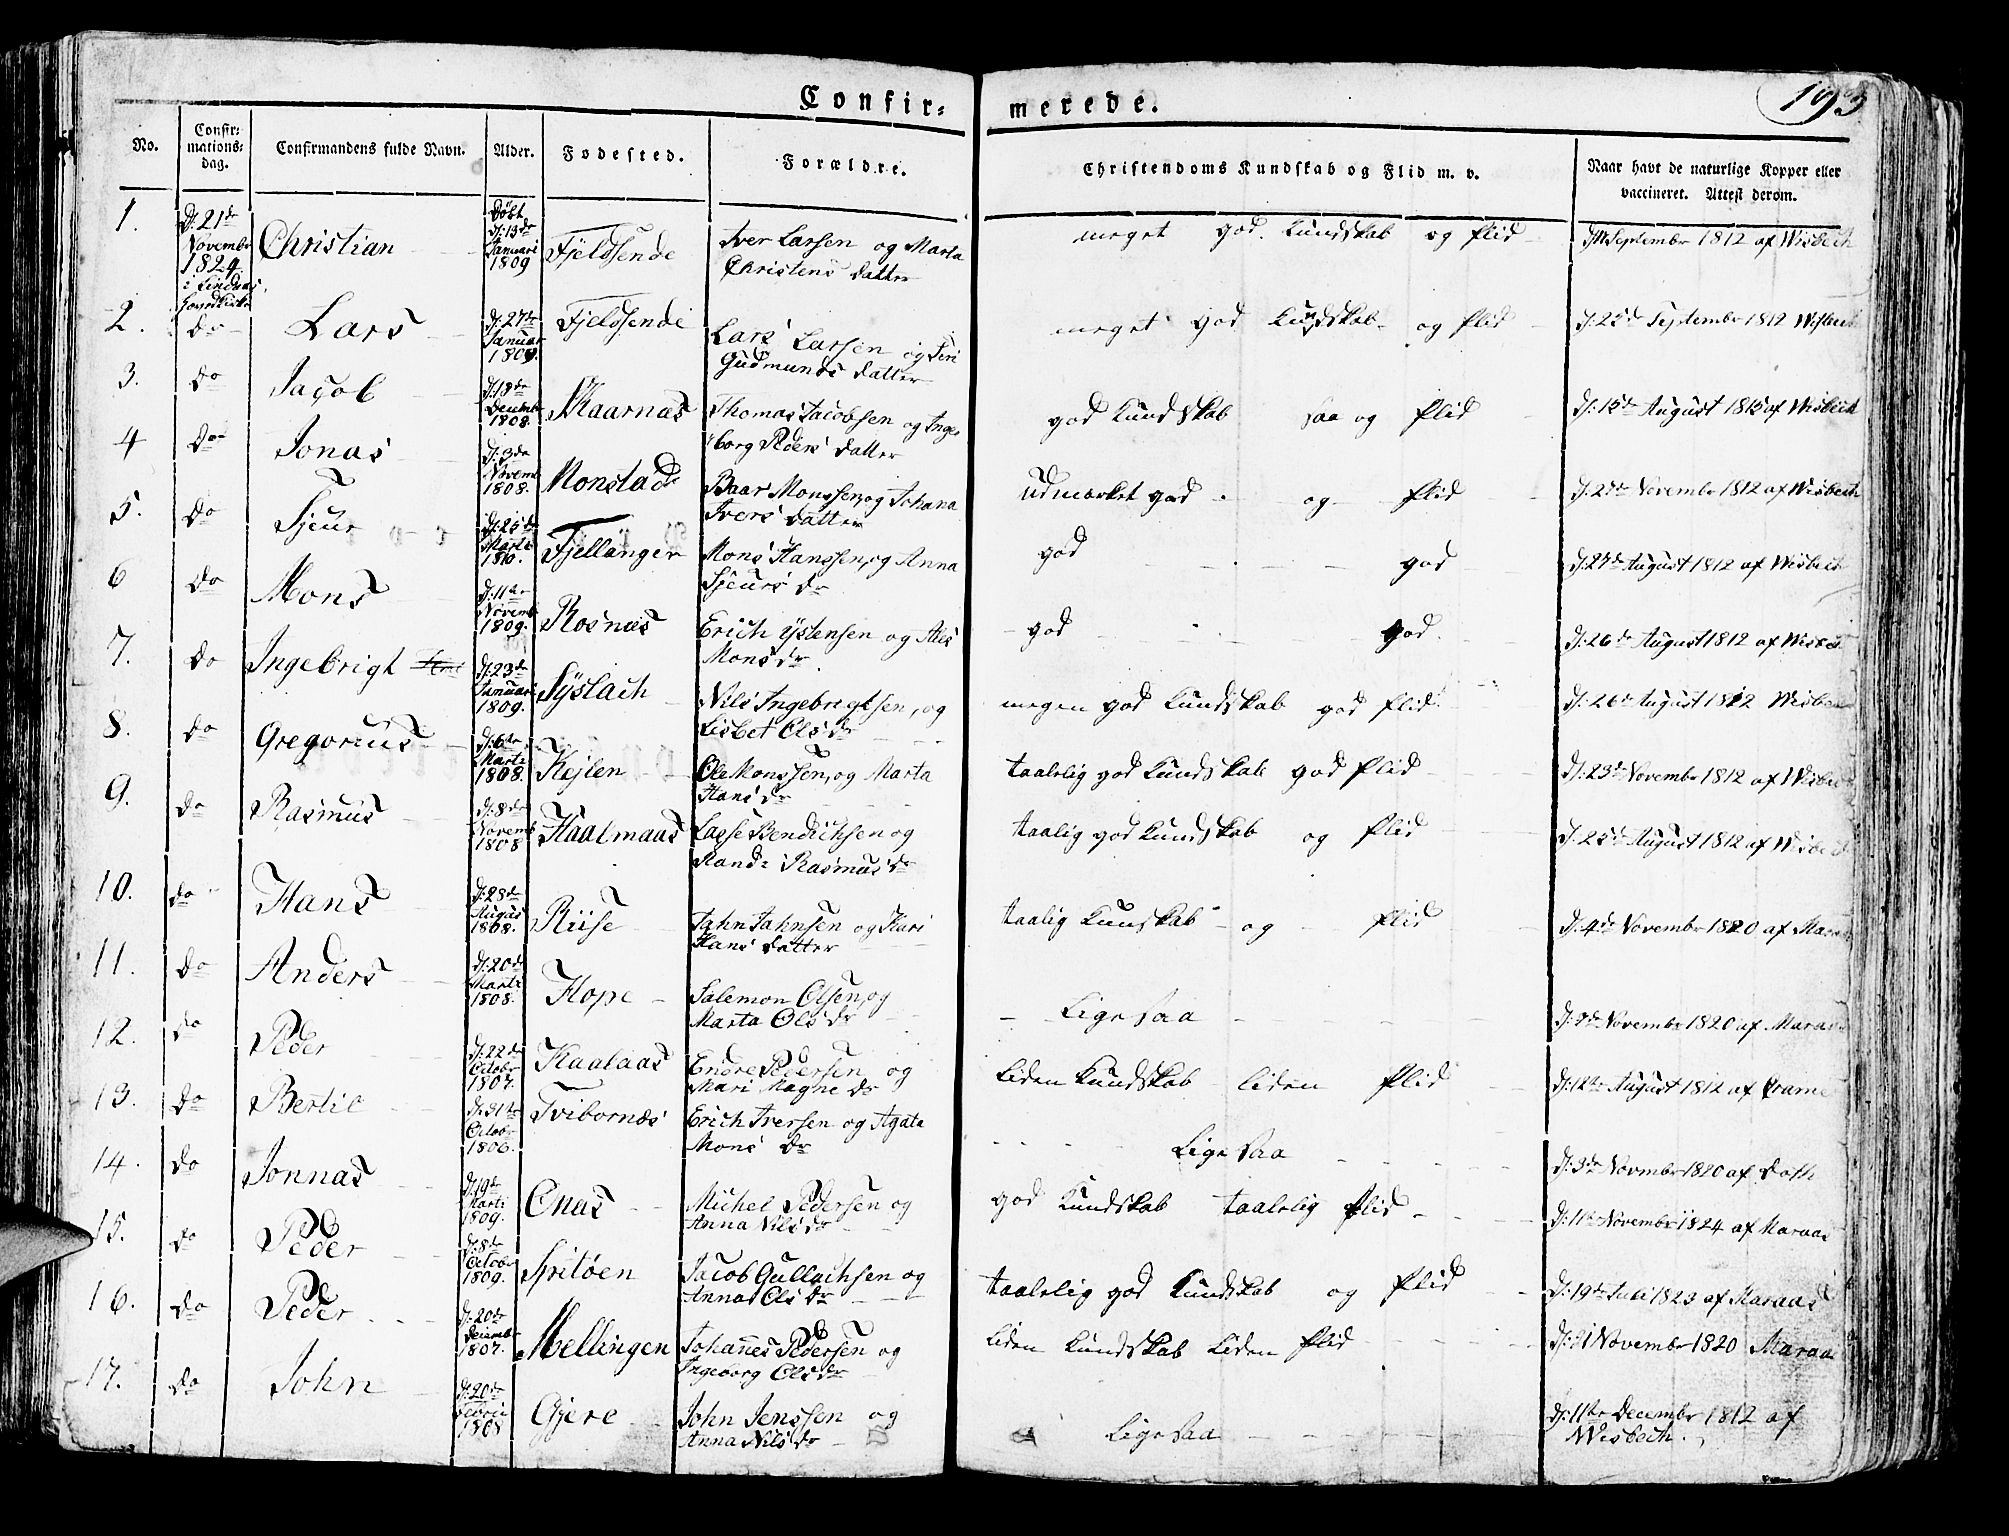 Confirmerede.
193
No.
Confirmationsdag.
Confirmandens fulde Navn.
Alder.
Fødested.
Forældre.
Christendoms Kundskab og Flid m. v.
Naar havt de naturlige Kopper eller vaccineret. Attest derom.
1.
D: 21de Novembr 1824 i Lindaas Hovedkirke
Christian
Døbt D: 13de Januari 1809
Fjeldsende
Iver Larsen og Marta
Christens datter
meget god Kundskab og flid
Septembr 1812 af Wisbech
2.
do
Lars
D: 27de Januar 1809.
Fjeldsende
Lars Larsen og Siri
Gudmunds datter
meget god Kundskab og flid
D: 25de Septembr 1812 Wisbech
3.
do
Jacob
D: 13de Decembr 1808.
Skaarnæs
Thomas Jacobsen og Inge
borg Peders datter
god Kundskab saa og flid
D: 15de August 1815 af Wisbech
4
do
Jonas
D: 3de Novemb 1808.
Monstad
Baar Monssen, og Johana
Ivers datter
Udmærket god og flid
D: 27de Novembr 1812 af Wisbech
5.
do
Sjeur
D: 25de Marti 1810.
Fjellanger
Mons Hanssen, og Anna
Sjeurs dr
god god
D: 27de August 1812 af Wisbech
6
do
Mons
D: 11te Novemb 1809.
Rosnæs
Erich Ystensen og Ales
Mons dr
god god
D: 26de August 1812 af Wisbech
7.
do
Ingebrigt
D: 23de Januari 1809.
Syslach
Nils Ingebrigtsen, og
Lisbet Ols dr
megen god Kundskab god flid
D: 26de August 1812 Wisbech
8.
do
Gregorius
D: 6te Marti 1808.
Kejlen
Ole Monssen, og Marta
Hans dr
taalelig god Kundskab god flid
D: 23de Novembr 1812 af Wisbech
9.
do
Rasmus
D: 8de Novemb 1808
Kaalmaas
Lasse Bendichsen og
Rand: Rasmus dr
taalig god Kundskab og flid
D: 25de August 1812 af Wisbech
10.
do
Hans
D: 28de August 1808.
Riise
Jahn Jahnsen og Kari
Hans datter
taalig Kunskab og flid
D: 4de Novembr 1820 af Maraas
11.
do
Anders
D: 20de Marti 1808.
Hope
Salemon Olsen, og
Marta Ols dr
Lige saa
D: 3de Novembr 1820 af Maraas
12.
do
Peder
D: 22de Octobr 1807.
Kaalaas
Endre Pedersen og
Mari Magne dr
Liden Kundskab liden flid
D: 12te August 1812 af Crame
13.
do
Bertil
D: 31te Octobr 1806.
Tvibornæs
Erich Iversen og Agata
Mons dr
Lige saa
D: 3de Novmbr 1820 af Dath
14.
do
Jonnas
D: 19de Marti 1809.
Enæs
Michel Pedersen og
Anna Nils dr
god Kundskab taalelig flid
D: 11te Novembr 1824 af Maraas
15.
do
Peder
D: 8de Octobr 1809.
Spitøen
Jacob Gullachsen og
Anna Ols dr
taalelig god Kundskab og flid
D: 19de Juli 1823 af Maraas
16.
do
Peder
D: 20de Decembr 1807.
Mellingen
Johannes Pedersen og
Ingeborg Ols dr
Liden Kundskab Liden flid
Novembr 1820 Maraas
17.
do
John
D: 20de Febru 1808
Gjere
John Jenssen og
Anna Nils dr
Lige saa
D: 11te Decembr 1812 af
Wisbech.